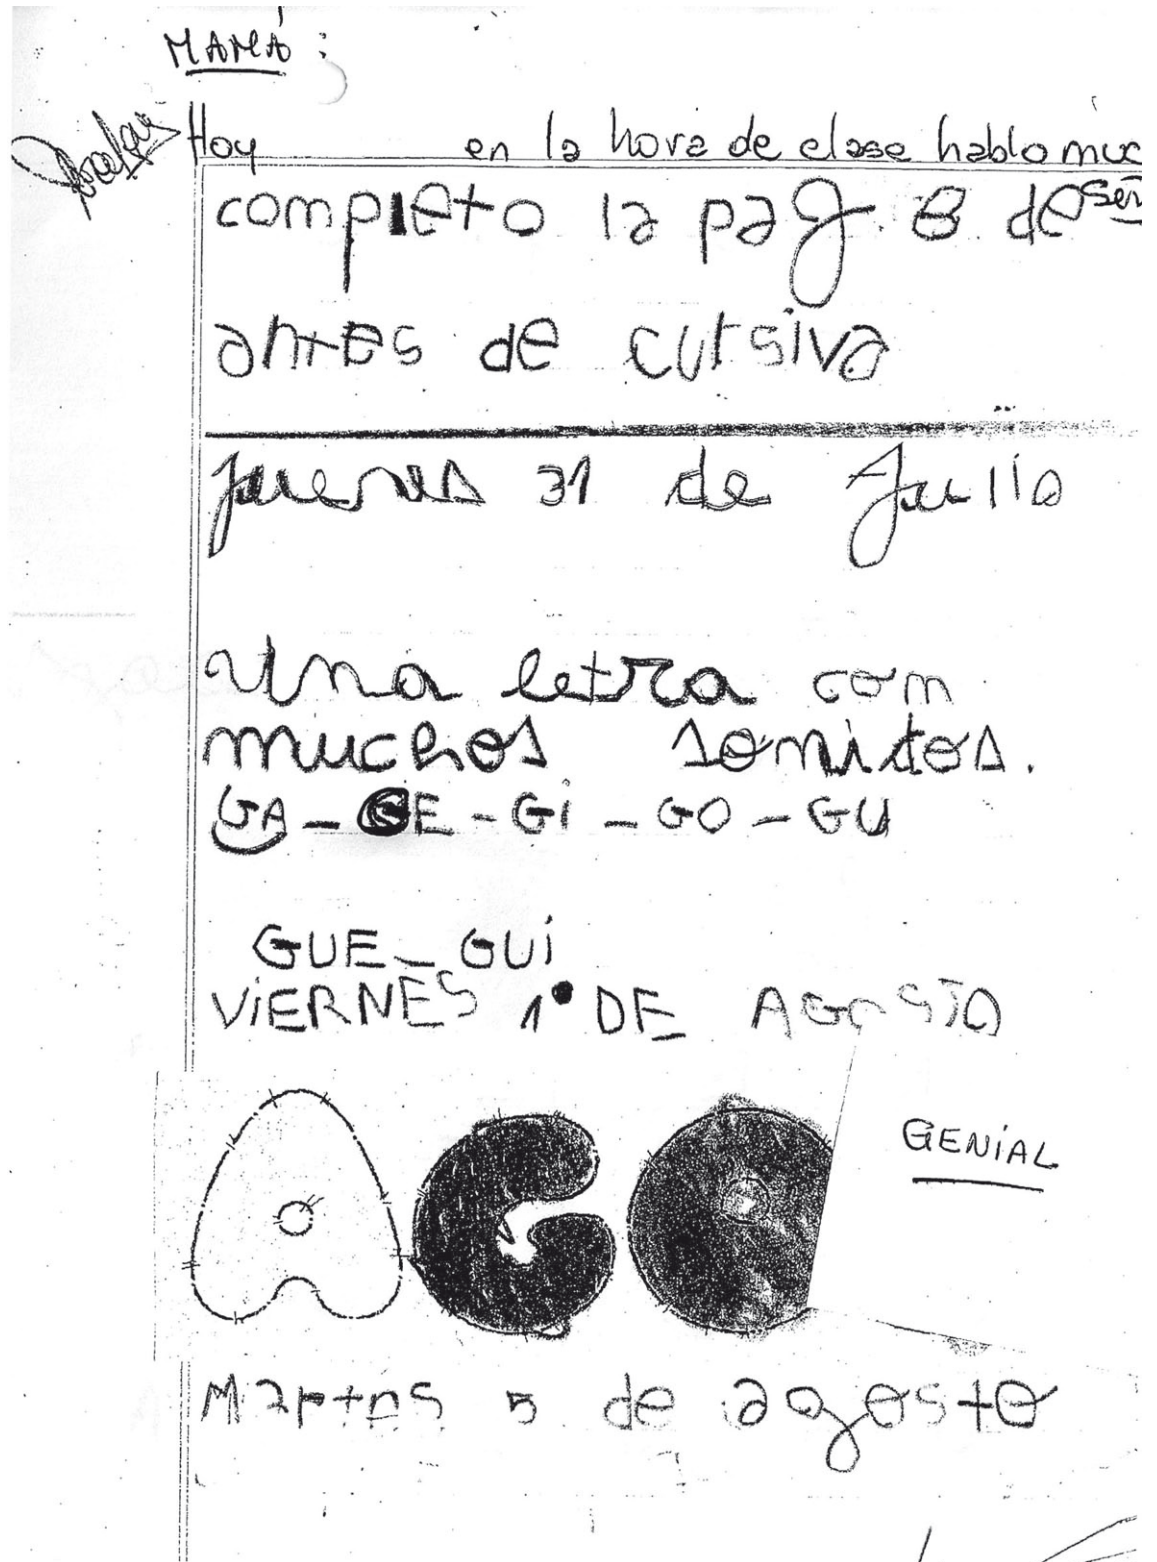 MAMÁ:
Hoy en la hora de clase hablo muc
completo la pag. 8 de señ
antes de cursiva
jueves 31 de Julio
Una letra con
muchos sonidos.
GA - GE - Gi - GO - GU
GUE - GUi
ViERNES 1º DE AGOSTO
AGO
GENiAL
Martes 5 de agosto